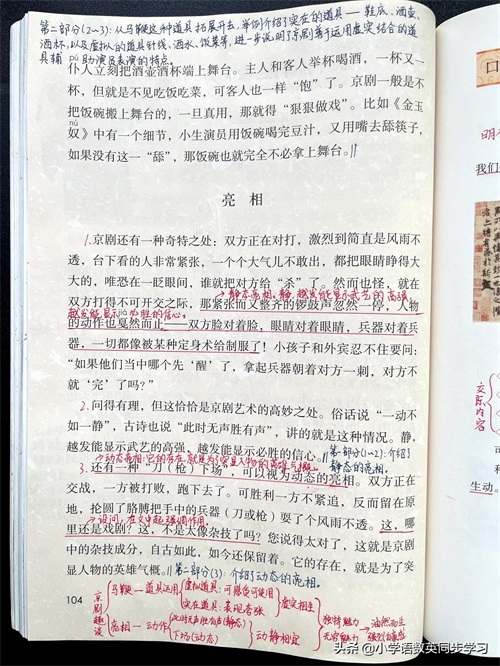 第二部分(2~3):从马鞭这种道具拓展开去,举例介绍了实在的道具——鞋底、酒壶、
酒杯,以及虚拟的道具针线、酒水、饭菜等,进一步说明了京剧善于运用虚实结合的道
具辅助演员表演的特点。
仆人立刻把酒壶酒杯端上舞台。主人和客人举杯喝酒,一杯又一
杯,但就是不见吃饭吃菜,可客人也一样“饱”了。京剧一般是不
把饭碗搬上舞台的,一旦真用,那就得“狠狠做戏”。比如《金玉
nú
奴》中有一个细节,小生演员用饭碗喝完豆汁,又用嘴去舔筷子,
如果没有这一“舔”,那饭碗也就完全不必拿上舞台。
亮 相
1.京剧还有一种奇特之处:双方正在对打,激烈到简直是风雨不
透,台下看的人非常紧张,一个个大气儿不敢出,都把眼睛睁得大
大的,唯恐在一眨眼间,谁就把对方给“杀”了。然而也怪,就在
静态亮相,静,越发能显示武艺的高强
双方打得不可开交之际,那紧张而又整齐的锣鼓声忽然一停,人物
越发能显示必胜的信心。
的动作也戛然而止——双方脸对着脸,眼睛对着眼睛,兵器对着兵
器,一切都像被某种定身术给制服了!小孩子和外宾忍不住要问:
“如果他们当中哪个先‘醒’了,拿起兵器朝着对方一刺,对方不
就‘完’了吗?”
2.问得有理,但这恰恰是京剧艺术的高妙之处。俗话说“一动不
如一静”,古诗也说“此时无声胜有声”,讲的就是这种情况。静,
越发能显示武艺的高强,越发能显示必胜的信心。
第一部分(1~2):介绍了
静态的亮相。
动态亮相:它的存在,就是为了突显人物的英雄气概。
3.还有一种“刀(枪)下场”,可以视为动态的亮相。双方正在
交战,一方被打败,跑下去了。可胜利一方不紧追,反而留在原
地,抡圆了胳膊把手中的兵器(刀或枪)耍了个风雨不透。这,哪
设问,在文中起强调作用。
里还是戏剧?这,不是太像杂技了吗?您说得太对了,这就是京剧
中的杂技成分,自古如此,如今还保留着。它的存在,就是为了突
显人物的英雄气概。
第二部分(3):介绍了动态的亮相。
104
京剧趣谈
马鞭—道具运用
虚拟道具:可感受可使用
实在道具:表现夸张
虚实相生
亮相—动作
此时无声胜有声(静态)
下场(动态)
动静相宜
独特魅力
无穷魅力
油然而生
强烈自豪感
口
明
我们
交际内容
生动。
头条 @小学语数英同步学习